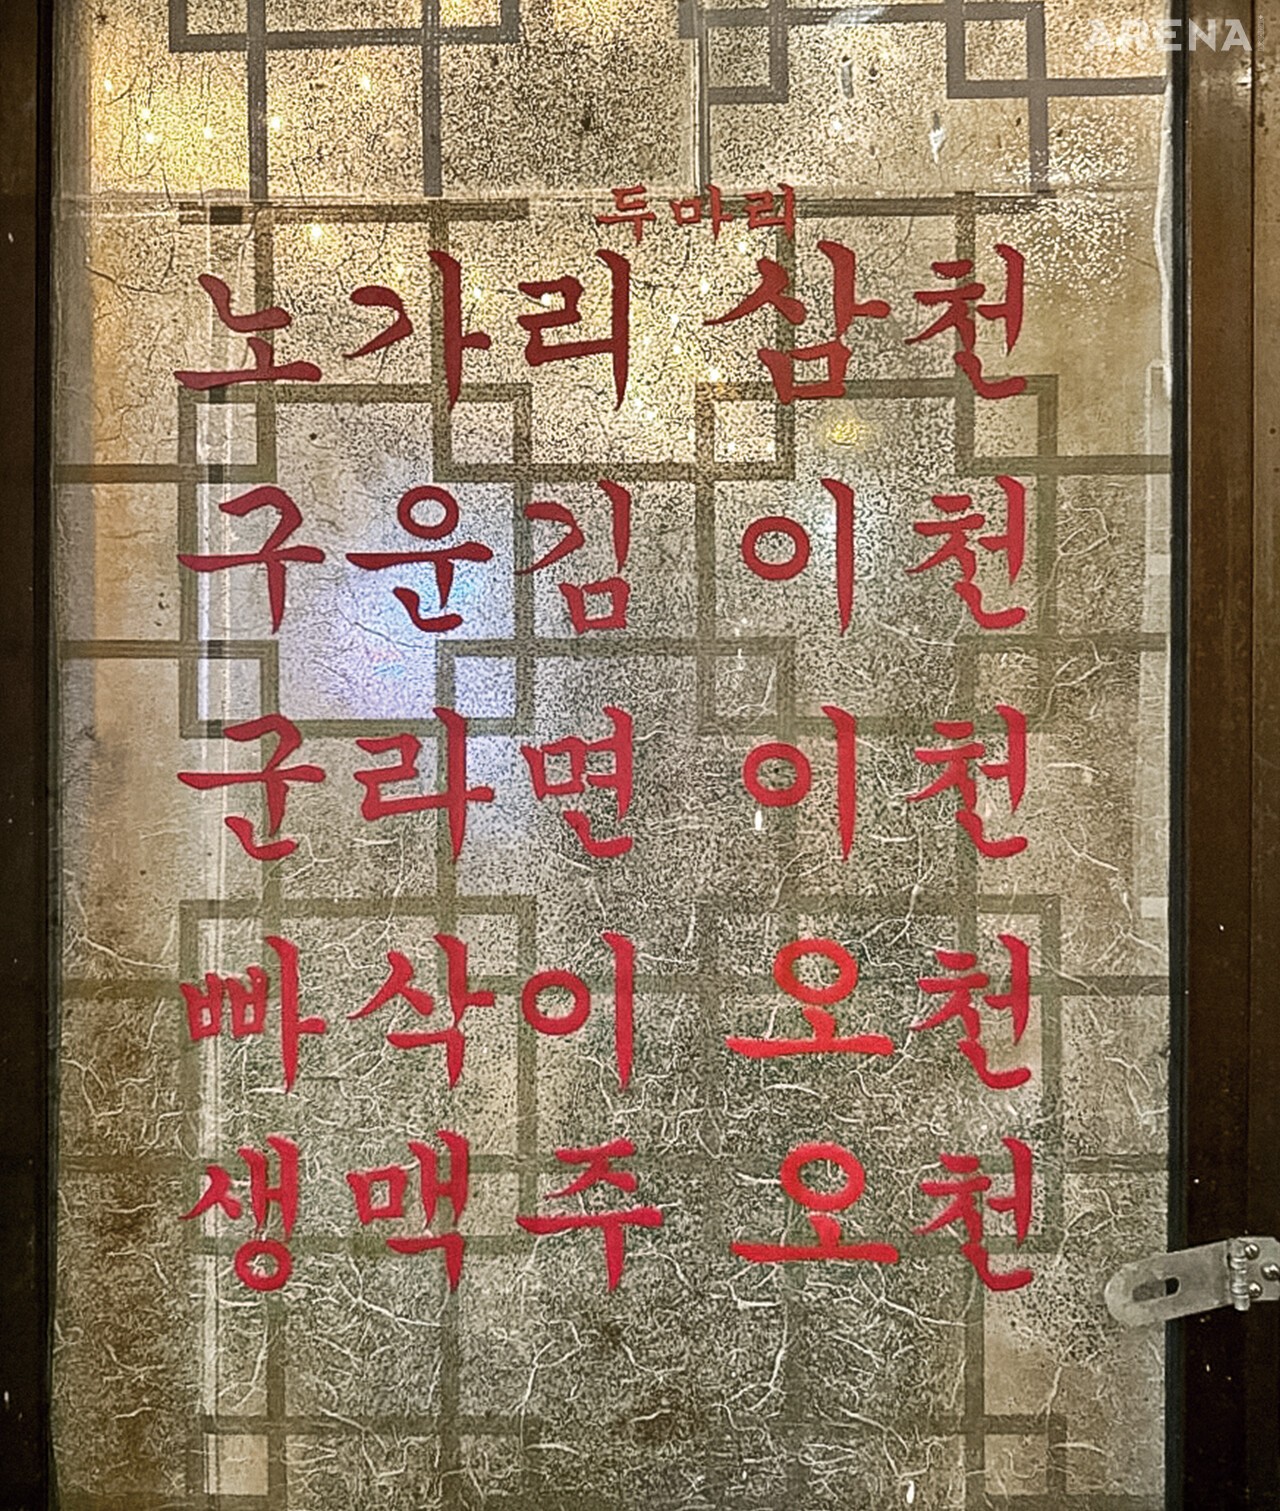 ARENA
두마리
노가리 삼천
구운김 이천
군라면 이천
빠삭이 오천
생맥주 오천